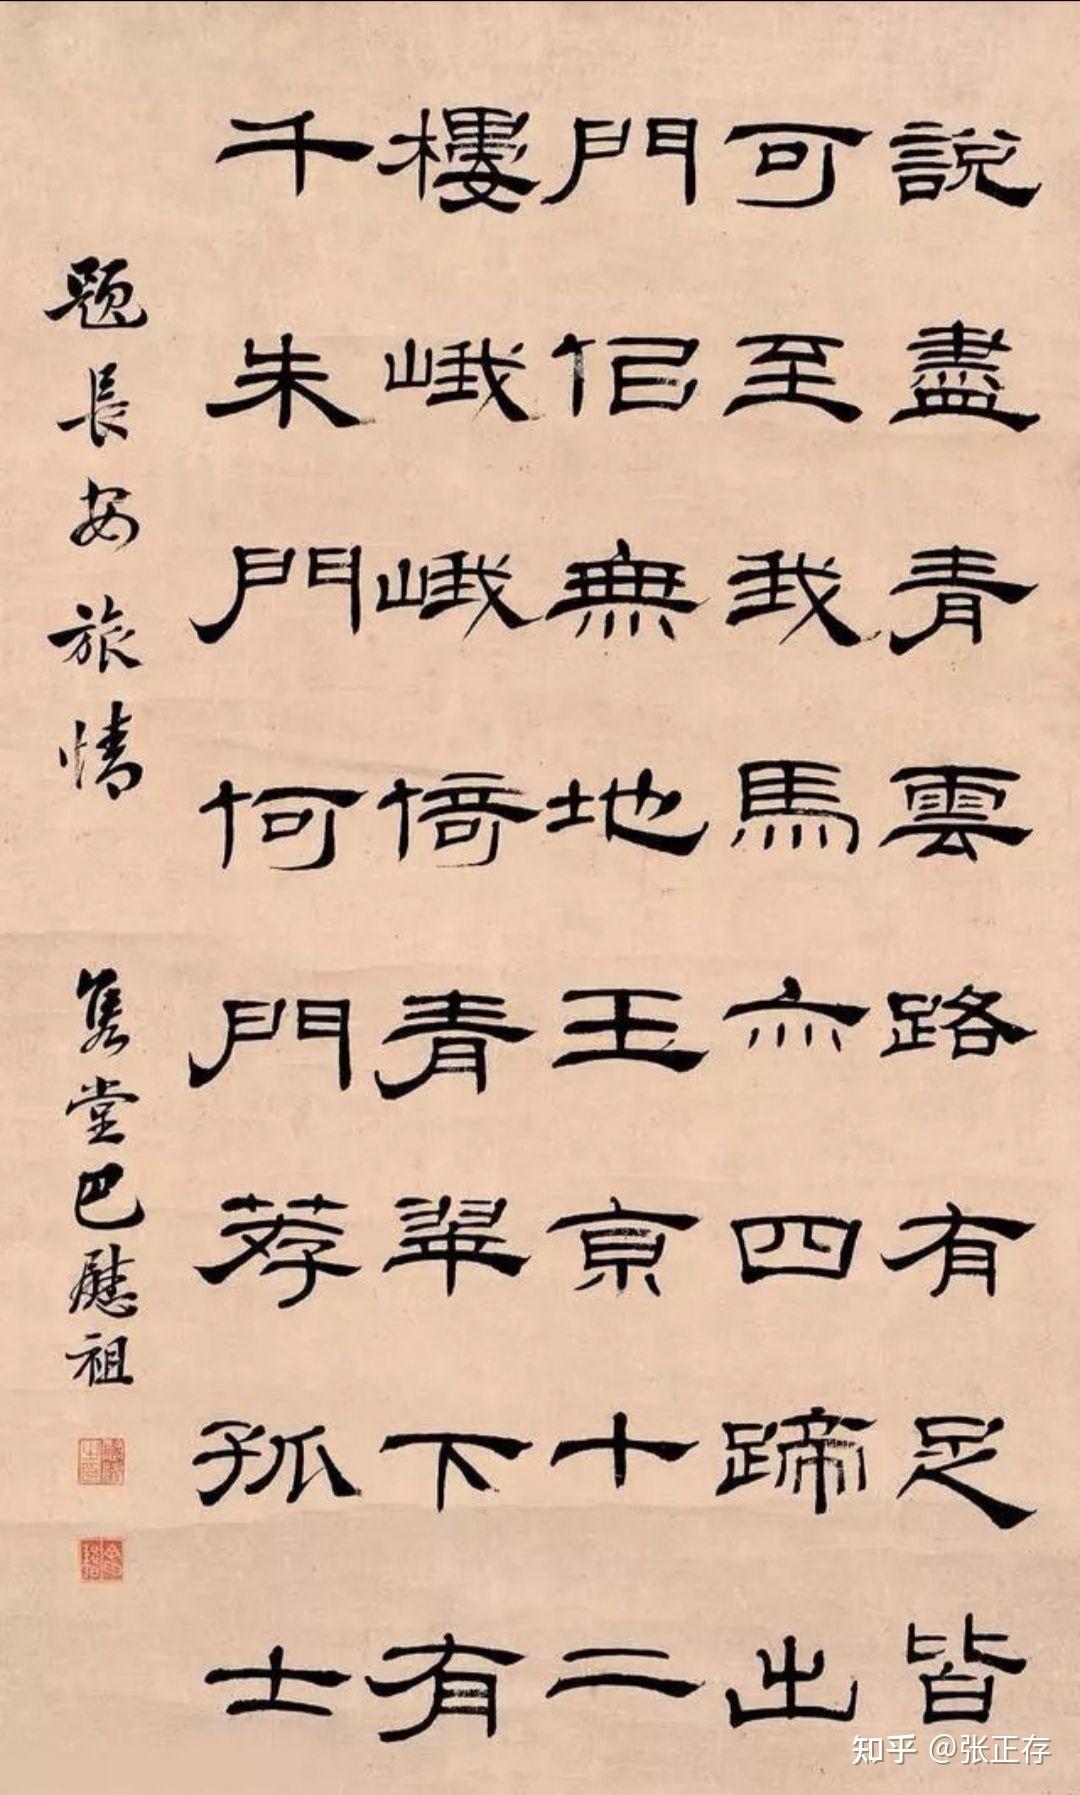 說盡青雲路有足皆
可至我馬亦四蹄出
門佀無地玉京十二
樓峨峨倚青翠下有
千朱門何門荐孤士
題長安旅情 雋堂巴慰祖
知乎 @张正存